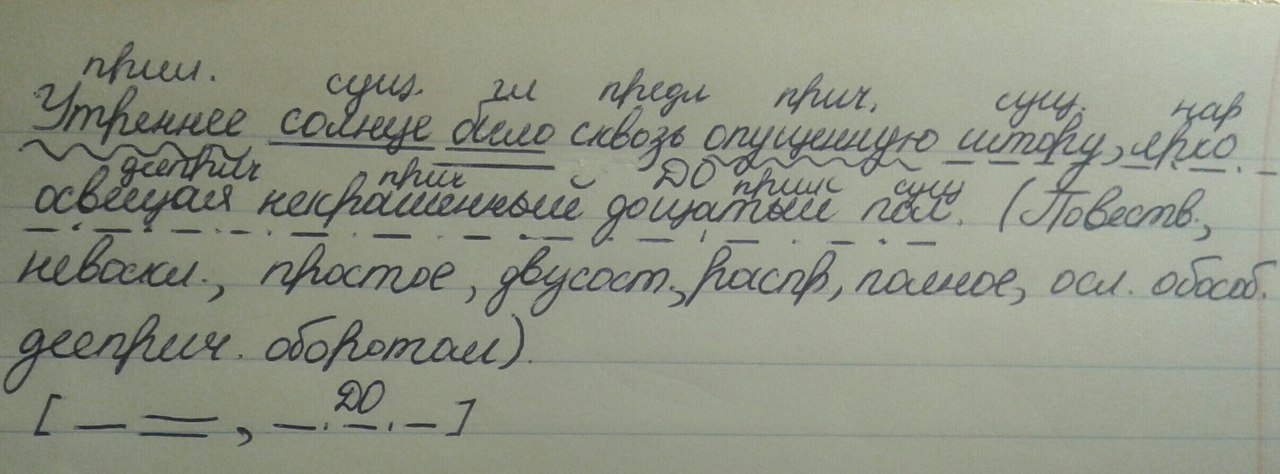 прил. сущ. гл предл прич. сущ. нар
Утреннее солнце било сквозь опущенную штору, ярко
дееприч прич ДО прил сущ
освещая некрашенный дощатый пол. (Повеств.,
невоскл., простое, двусост., распр, полное, осл. обособ.
дееприч. оборотом).
ДО
[ , ]